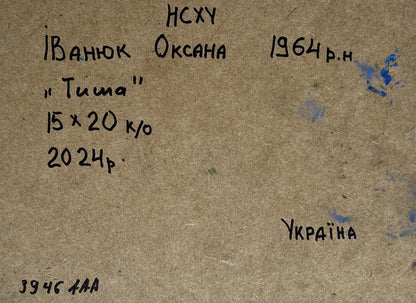 НСХУ
Іванюк Оксана 1964 р.н
„Тиша"
15 x 20 к/о
2024р.
Україна
3946 ААА